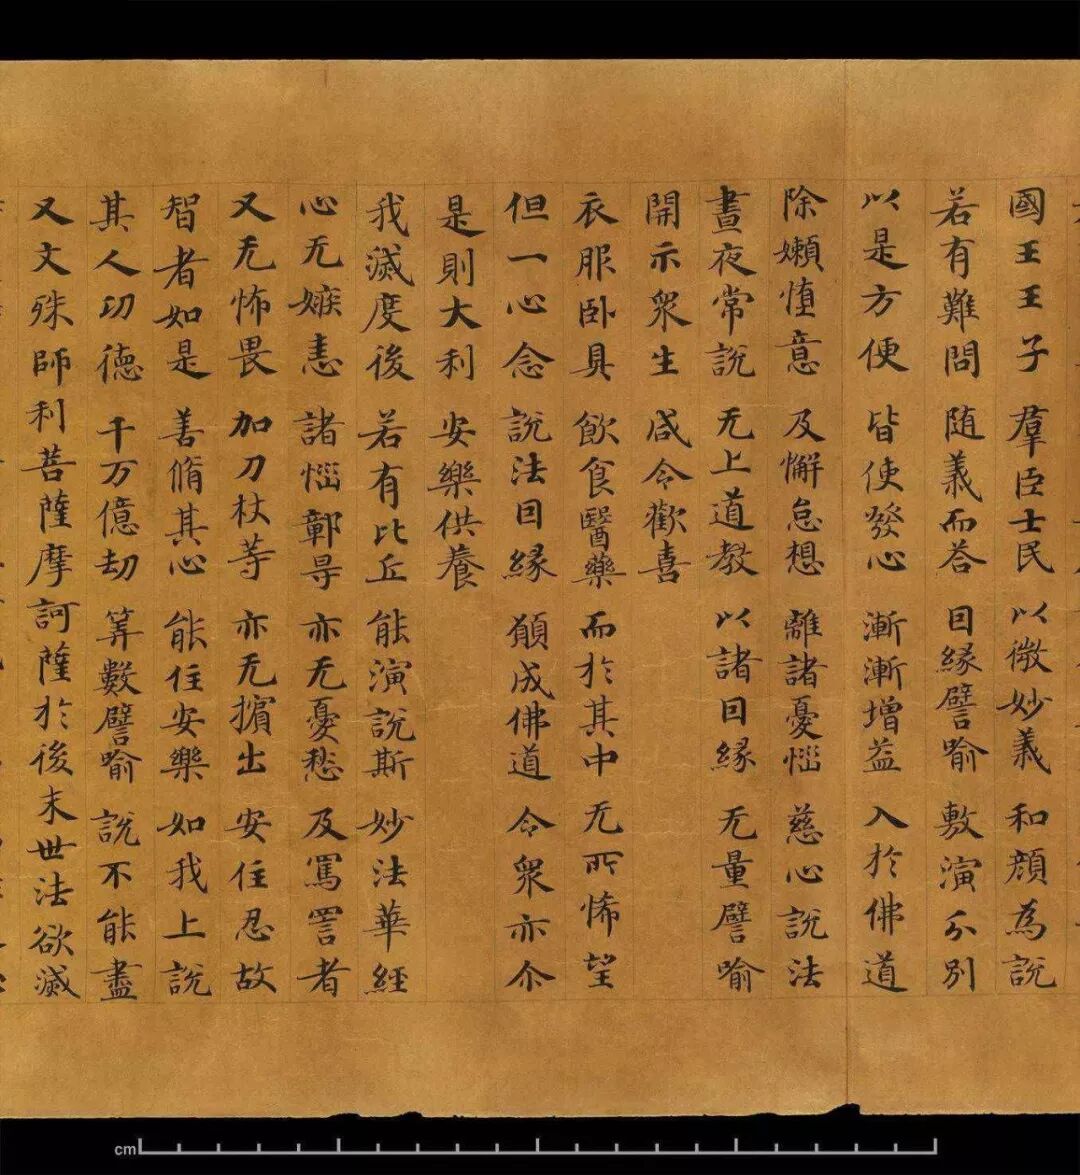 國王王子 羣臣士民 以微妙義 和顏為說
若有難問 随義而荅 因緣譬喻 敷演分別
以是方便 皆使發心 漸漸增益 入於佛道
除嬾惰意 及懈怠想 離諸憂惱 慈心說法
晝夜常說 无上道教 以諸因緣 无量譬喻
開示眾生 咸令歡喜
衣服卧具 飲食醫藥 而於其中 无所悕望
但一心念 說法因緣 願成佛道 令眾亦尒
是則大利 安樂供養
我滅度後 若有比丘 能演說斯 妙法華經
心无嫉恚 諸惱鄣㝵 亦无憂愁 及罵詈者
又无怖畏 加刀杖等 亦无擯出 安住忍故
智者如是 善脩其心 能住安樂 如我上說
其人功德 千万億劫 筭數譬喻 說不能盡
又文殊師利菩薩摩訶薩於後末世法欲滅
cm